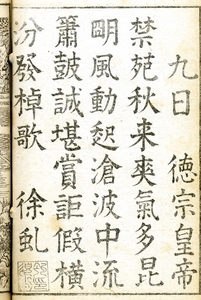 九日　德宗皇帝
禁苑秋来爽氣多昆
明風動起滄波中流
簫鼓誠堪賞詎假橫
汾發棹歌　徐虬